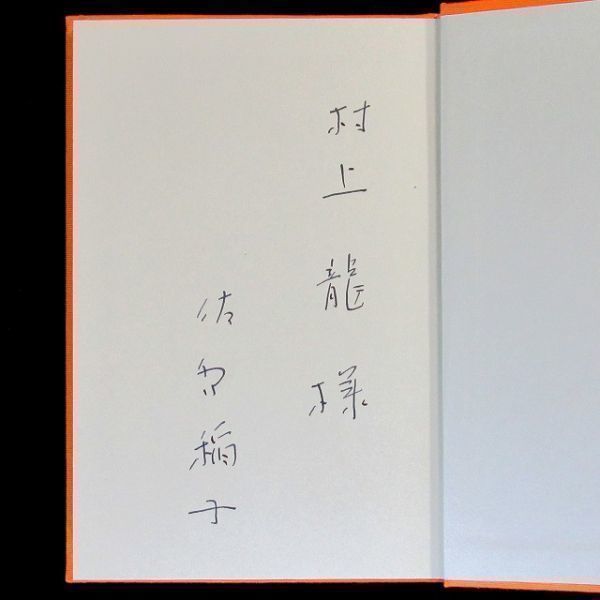 村上龍様
佐多稲子